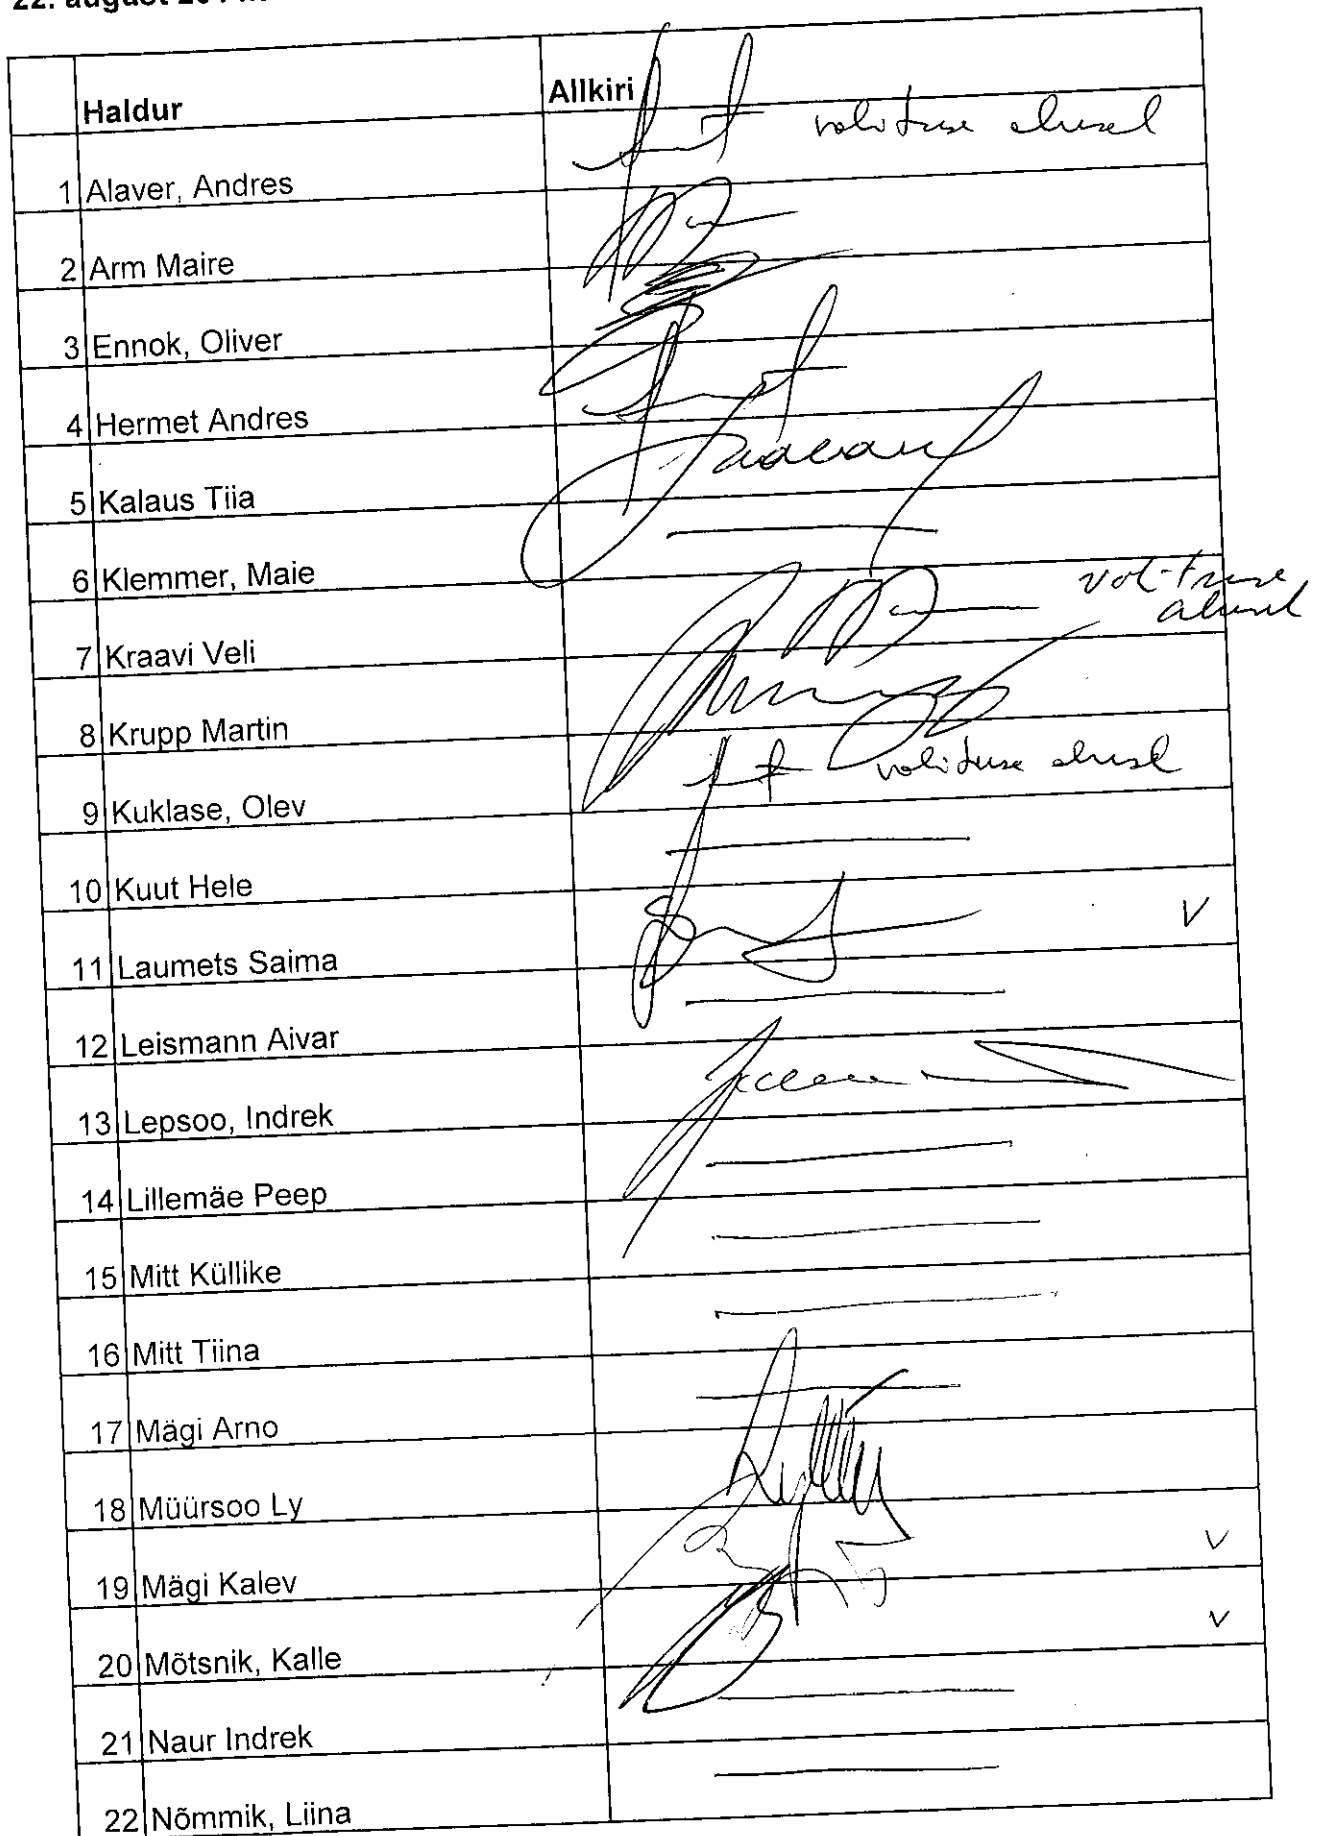 22. august
Haldur Allkiri
1 Alaver, Andres volituse alusel
2 Arm Maire
3 Ennok, Oliver
4 Hermet Andres
5 Kalaus Tiia
6 Klemmer, Maie
7 Kraavi Veli volituse
alusel
8 Krupp Martin
9 Kuklase, Olev volituse alusel
10 Kuut Hele
11 Laumets Saima V
12 Leismann Aivar
13 Lepsoo, Indrek
14 Lillemäe Peep
15 Mitt Küllike
16 Mitt Tiina
17 Mägi Arno
18 Müürsoo Ly
19 Mägi Kalev V
20 Mõtsnik, Kalle V
21 Naur Indrek
22 Nõmmik, Liina